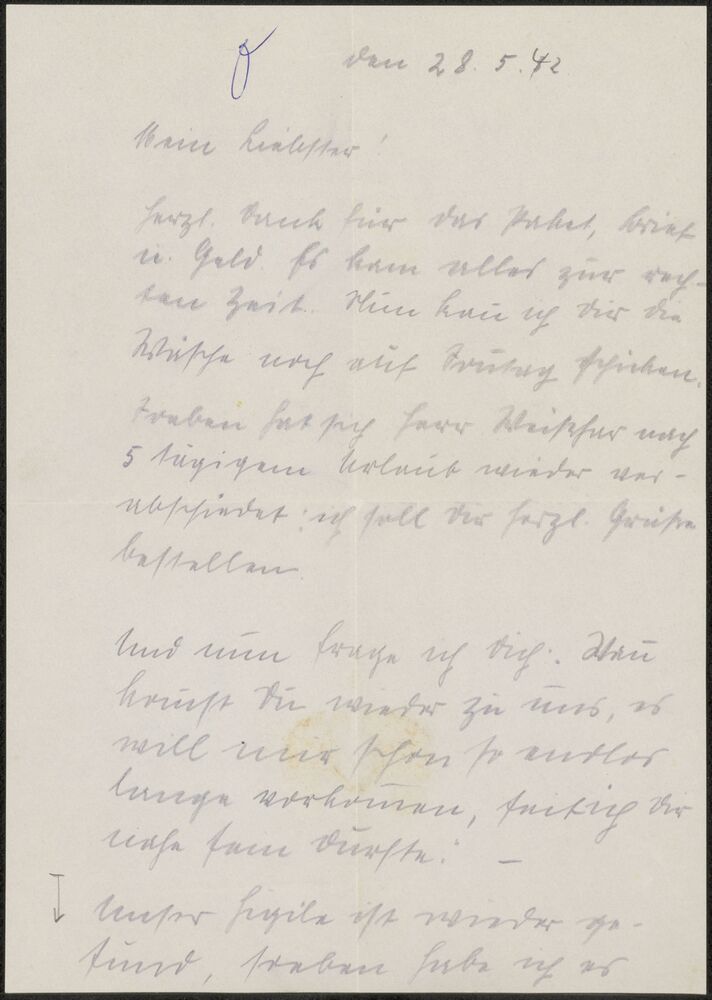 den 28. 5. 42
Mein Liebster!
Herzl. Dank für das Paket, Brief
u. Geld. Es kam alles zur rech-
ten Zeit. Nun kan̅ ich Dir die
Wäsche noch auf Son̅tag schicken.
Soeben hat sich Herr nach
5 tägigem Urlaub wieder ver-
abschiedet; ich soll Dir herzl. Grüße
bestellen.
Und nun frage ich Dich: Wan̅
kom̅st Du wieder zu uns, es
will mir schon so endlos
lange vorkom̅en, seit ich Dir
nahe sein durfte! –
Unser ist wieder ge-
sund, soeben habe ich es